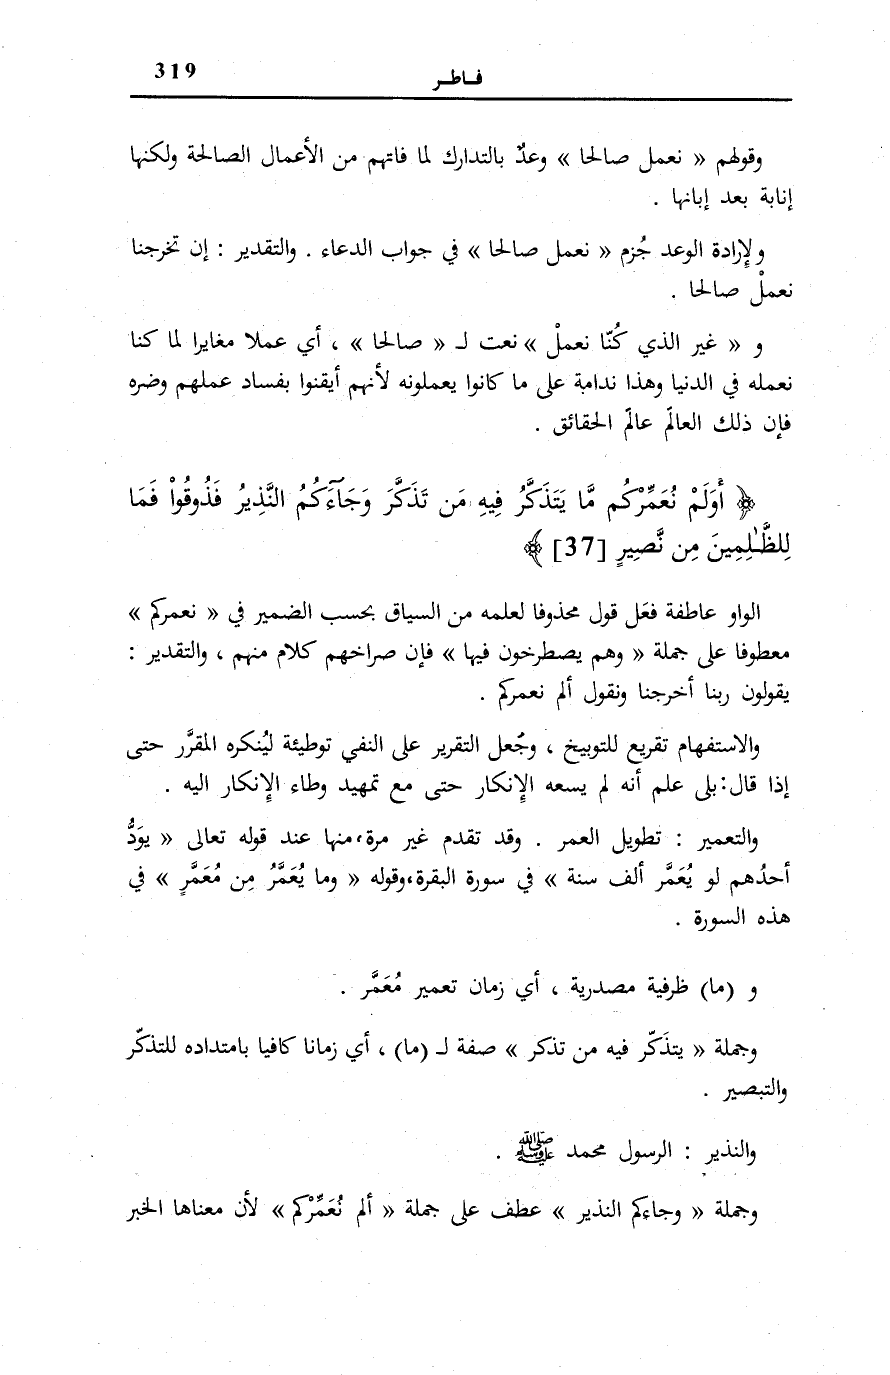 319
فـاطـر
وقولهم « نعمل صالحا » وعدٌ بالتدارك لما فاتهم من الأعمال الصالحة ولكنها
إنابة بعد إبانها .
ولإرادة الوعد جُزم « نعمل صالحا » في جواب الدعاء . والتقدير : إن تخرجنا
نعملْ صالحا .
و « غير الذي كُنّا نعملْ » نعت لـ « صالحا » ، أي عملا مغايرا لما كنا
نعمله في الدنيا وهذا ندامة على ما كانوا يعملونه لأنهم أيقنوا بفساد عملهم وضره
فإن ذلك العالَم عالَم الحقائق .
﴿ أَوَلَمْ نُعَمِّرْكُم مَّا يَتَذَكَّرُ فِيهِ مَن تَذَكَّرَ وَجَآءَكُمُ النَّذِيرُ فَذُوقُواْ فَمَا
لِلظَّـٰلِمِينَ مِن نَّصِيرٍ [37] ﴾
الواو عاطفة فعَل قول محذوفا لعلمه من السياق بحسب الضمير في « نعمركم »
معطوفا على جملة « وهم يصطرخون فيها » فإن صراخهم كلام منهم ، والتقدير :
يقولون ربنا أخرجنا ونقول ألم نعمركم .
والاستفهام تقريع للتوبيخ ، وجُعل التقرير على النفي توطيئة ليُنكره المقرَّر حتى
إذا قال: بلى علم أنه لم يسعه الإنكار حتى مع تمهيد وطاء الإنكار اليه .
والتعمير : تطويل العمر . وقد تقدم غير مرة، منها عند قوله تعالى « يوَدُّ
أحدُهم لو يُعَمَّر ألف سنة » في سورة البقرة، وقوله « وما يُعَمَّرُ مِن مُعَمَّرٍ » في
هذه السورة .
و (ما) ظرفية مصدرية ، أي زمان تعمير مُعَمَّر .
وجملة « يتذَكّر فيه من تذكر » صفة لـ (ما) ، أي زمانا كافيا بامتداده للتذكّر
والتبصير .
والنذير : الرسول محمد ﷺ .
وجملة « وجاءكم النذير » عطف على جملة « ألم نُعَمِّرْكم » لأن معناها الخبر